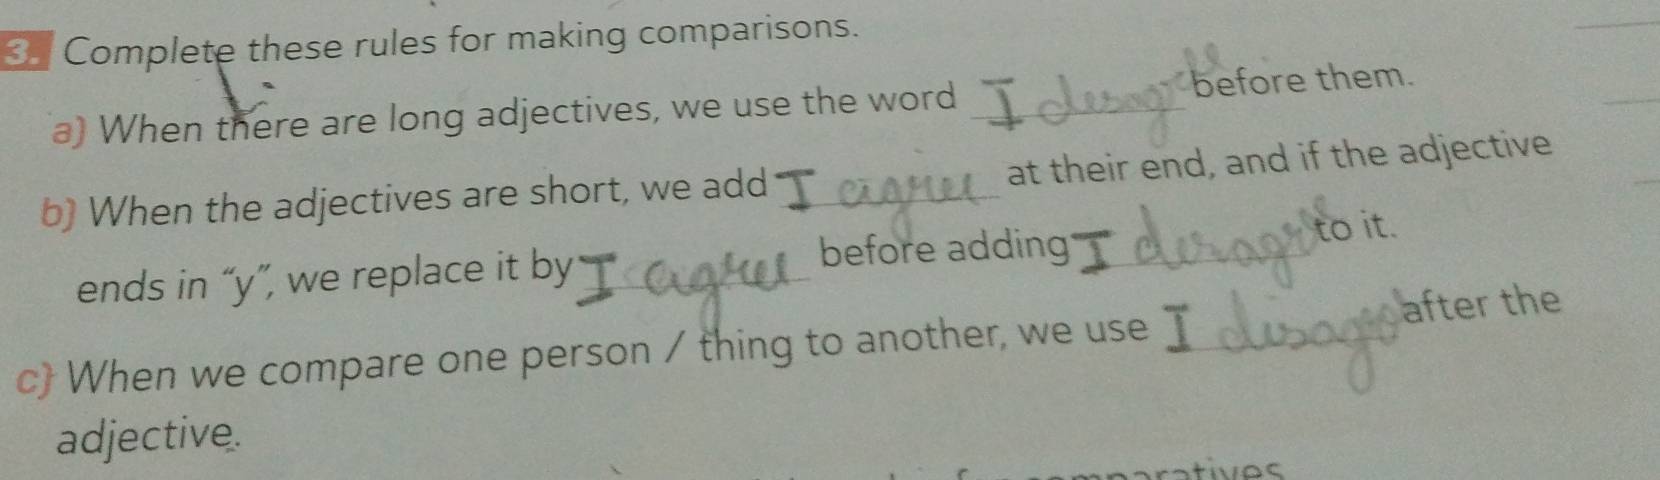 3. Complete these rules for making comparisons.
a) When there are long adjectives, we use the word I desagree before them.
b) When the adjectives are short, we add I agree at their end, and if the adjective
ends in "y", we replace it by I agree before adding I desagre to it.
c) When we compare one person / thing to another, we use I disagre after the
adjective.
comparatives